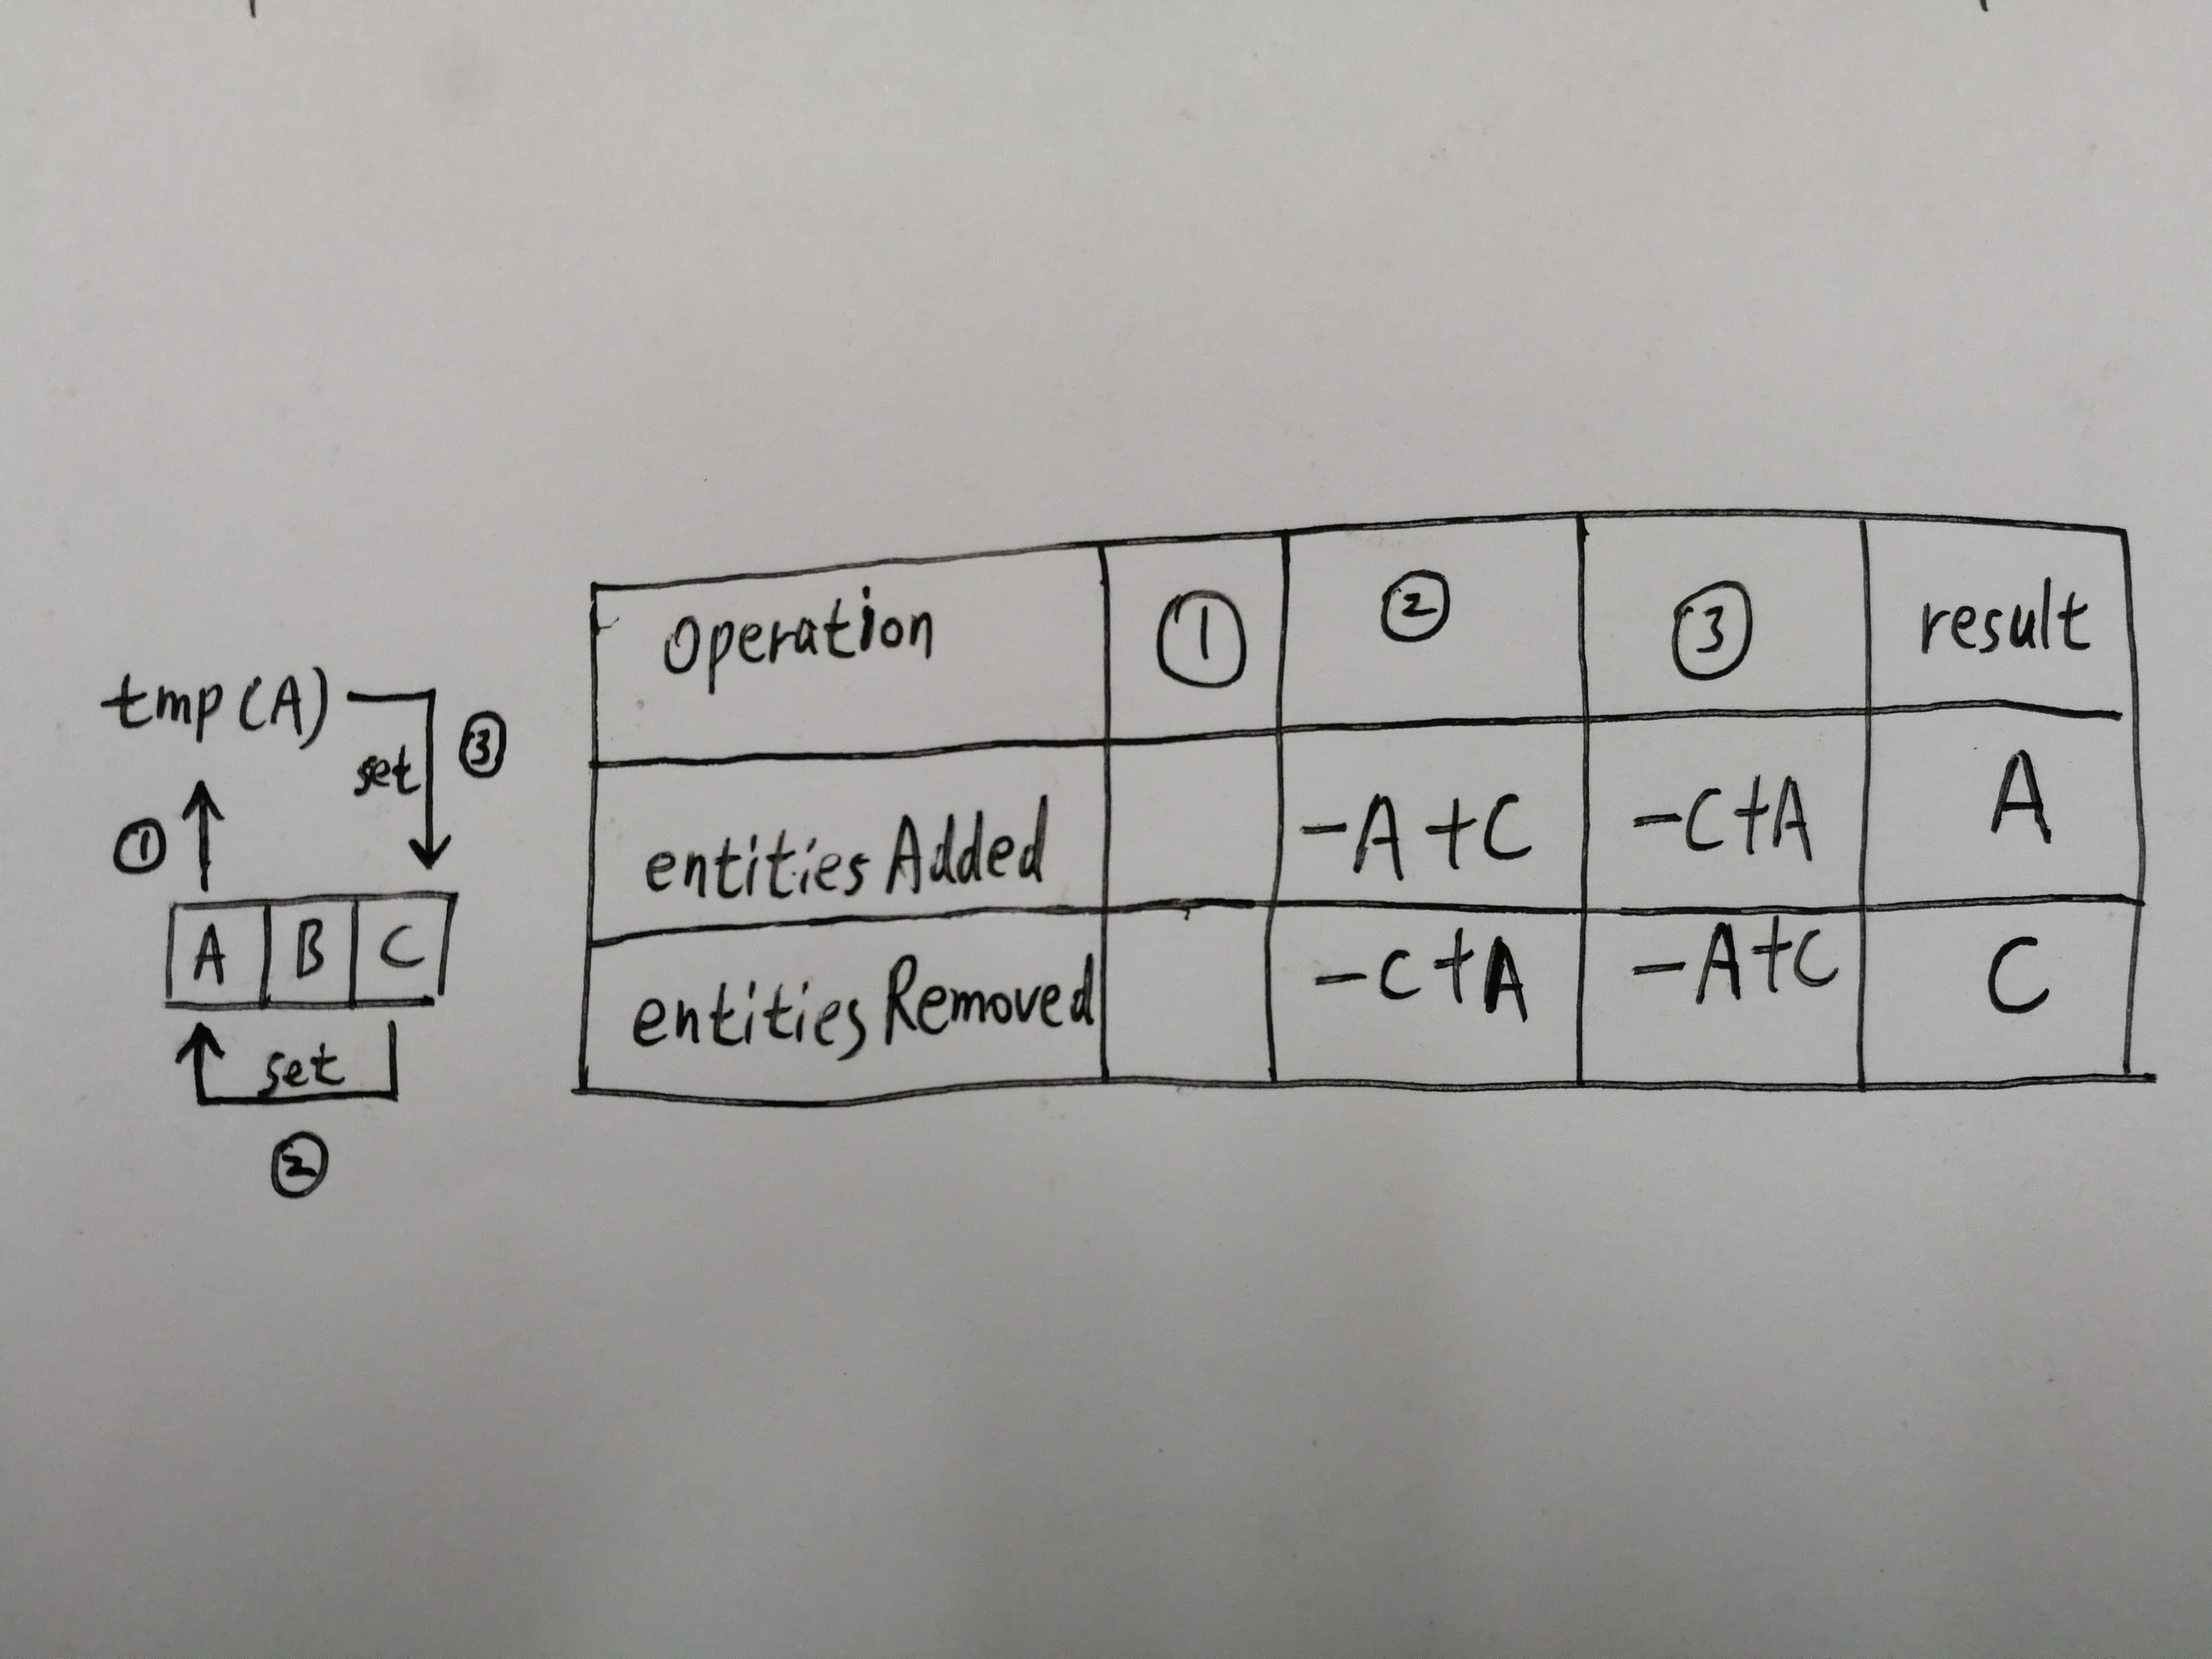 tmp(A)
set ③
①
A B C
set
②
operation ① ② ③ result
entities Added -A+C -C+A A
entities Removed -C+A -A+C C